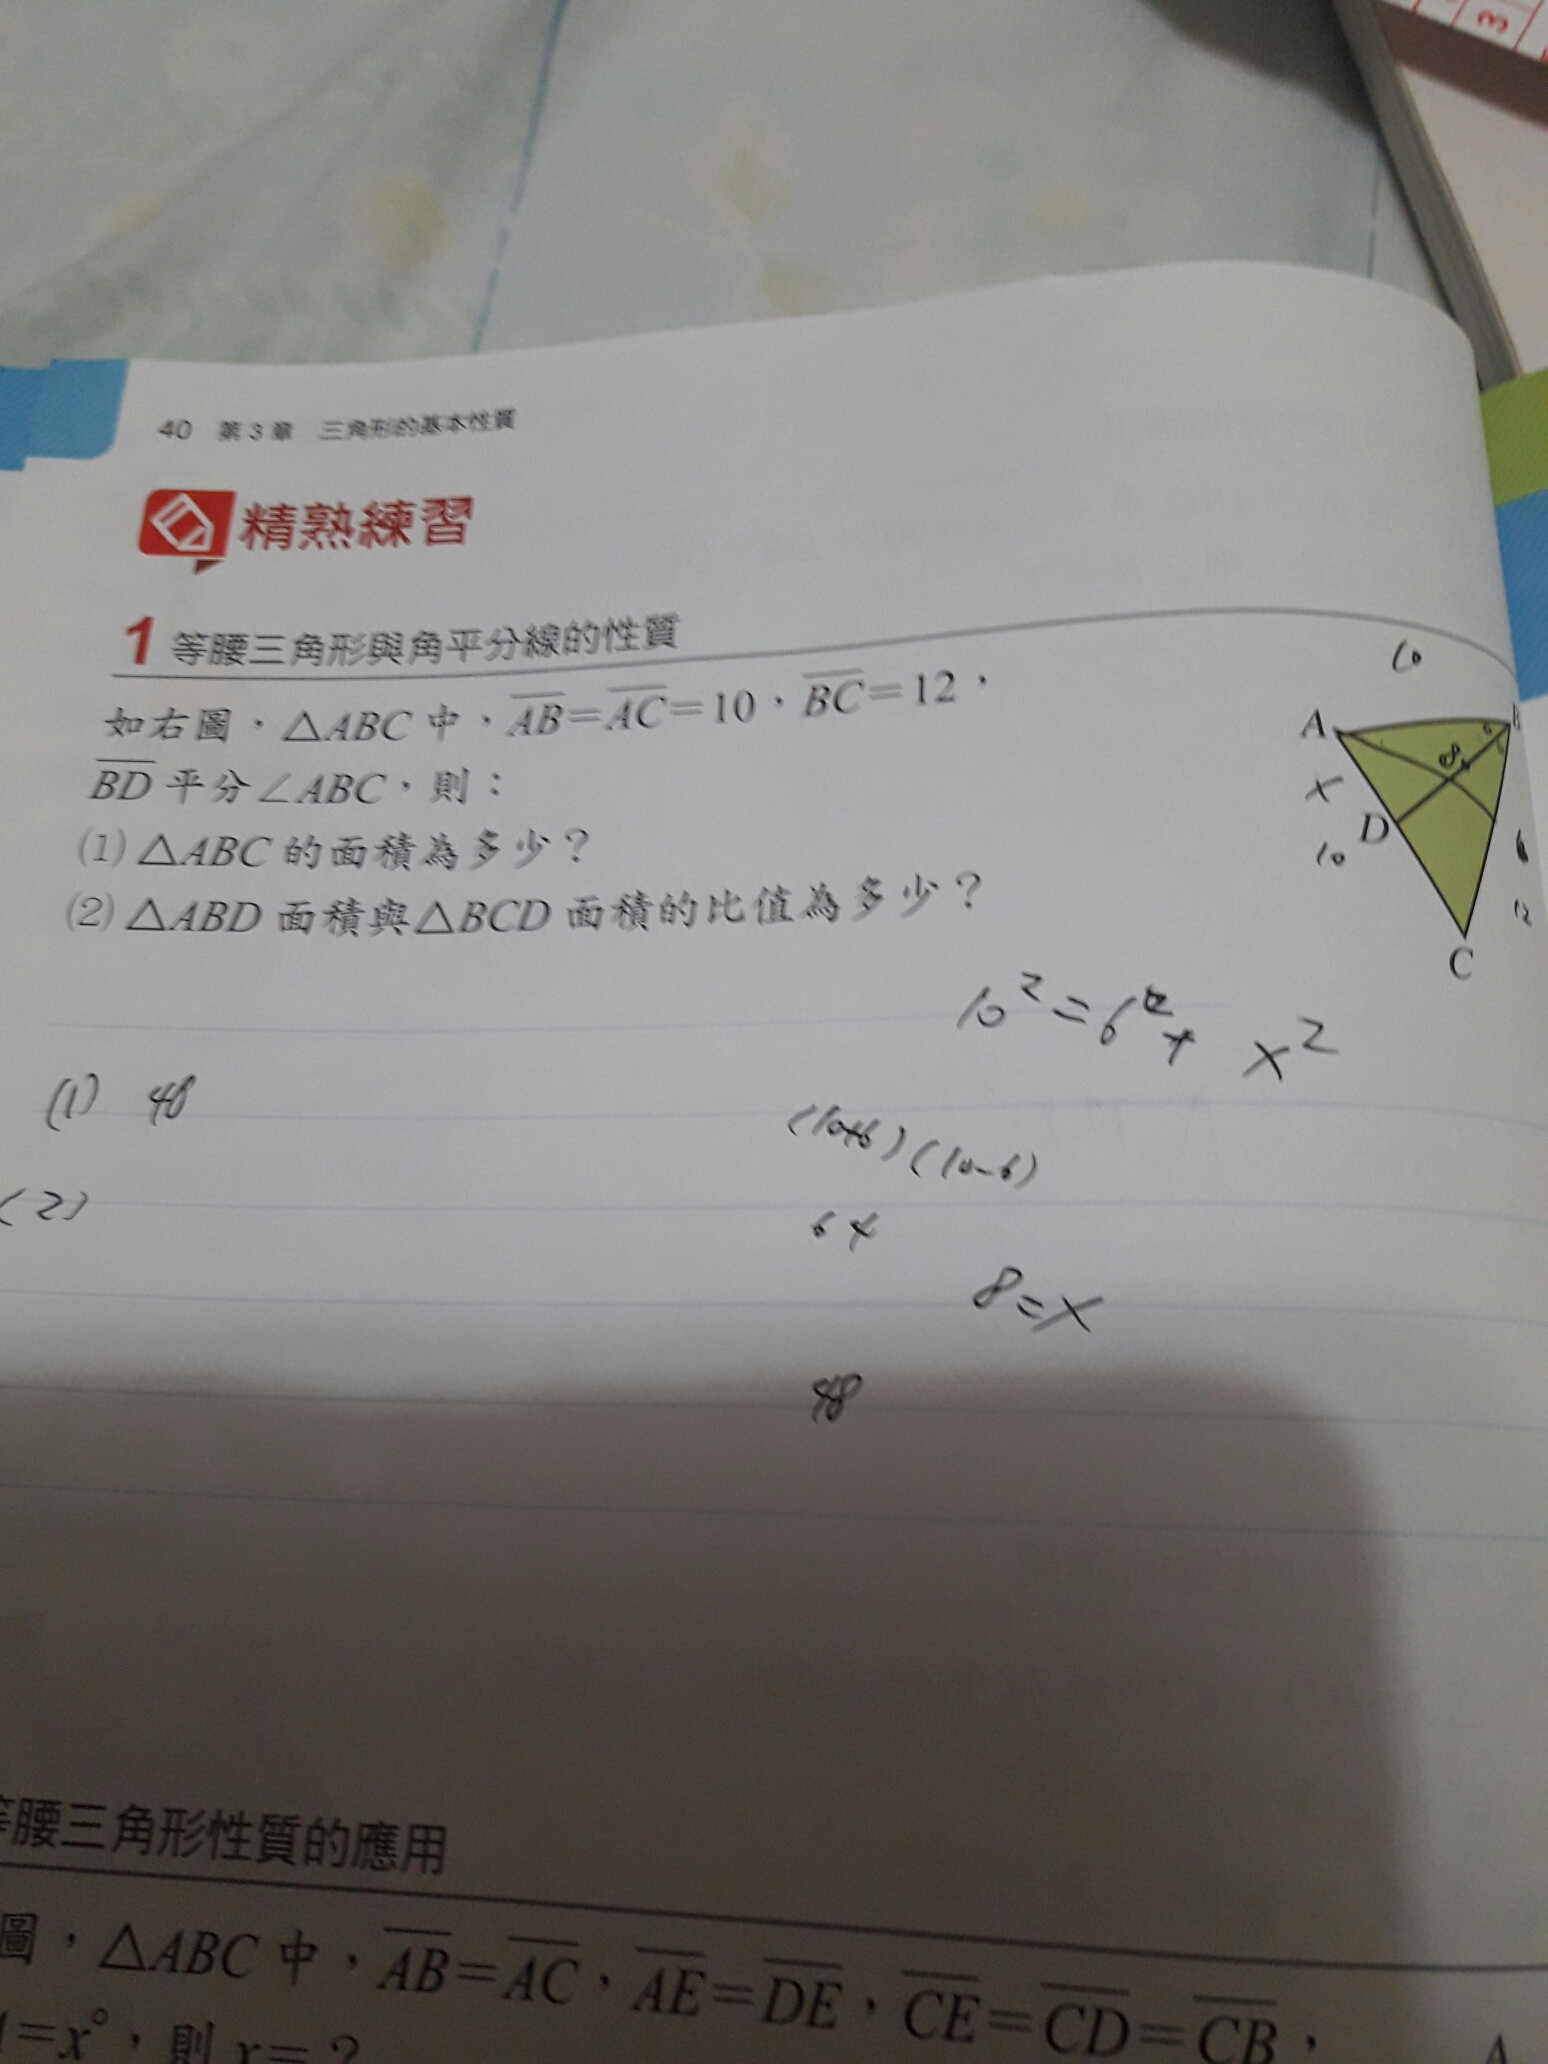 3
40 第3章 三角形的基本性質
精熟練習
1 等腰三角形與角平分線的性質
如右圖,△ABC 中,AB=AC=10,BC=12,
BD 平分∠ABC,則:
(1) △ABC 的面積為多少?
(2) △ABD 面積與△BCD 面積的比值為多少?
10
A
B
8
x
D
10
6
12
C
10²=6²+ x²
(1) 48
(10+6)(10-6)
(2)
64
8=x
48
腰三角形性質的應用
圖,△ABC 中,AB=AC,AE=DE,CE=CD=CB,
=x°,則 x=?
A